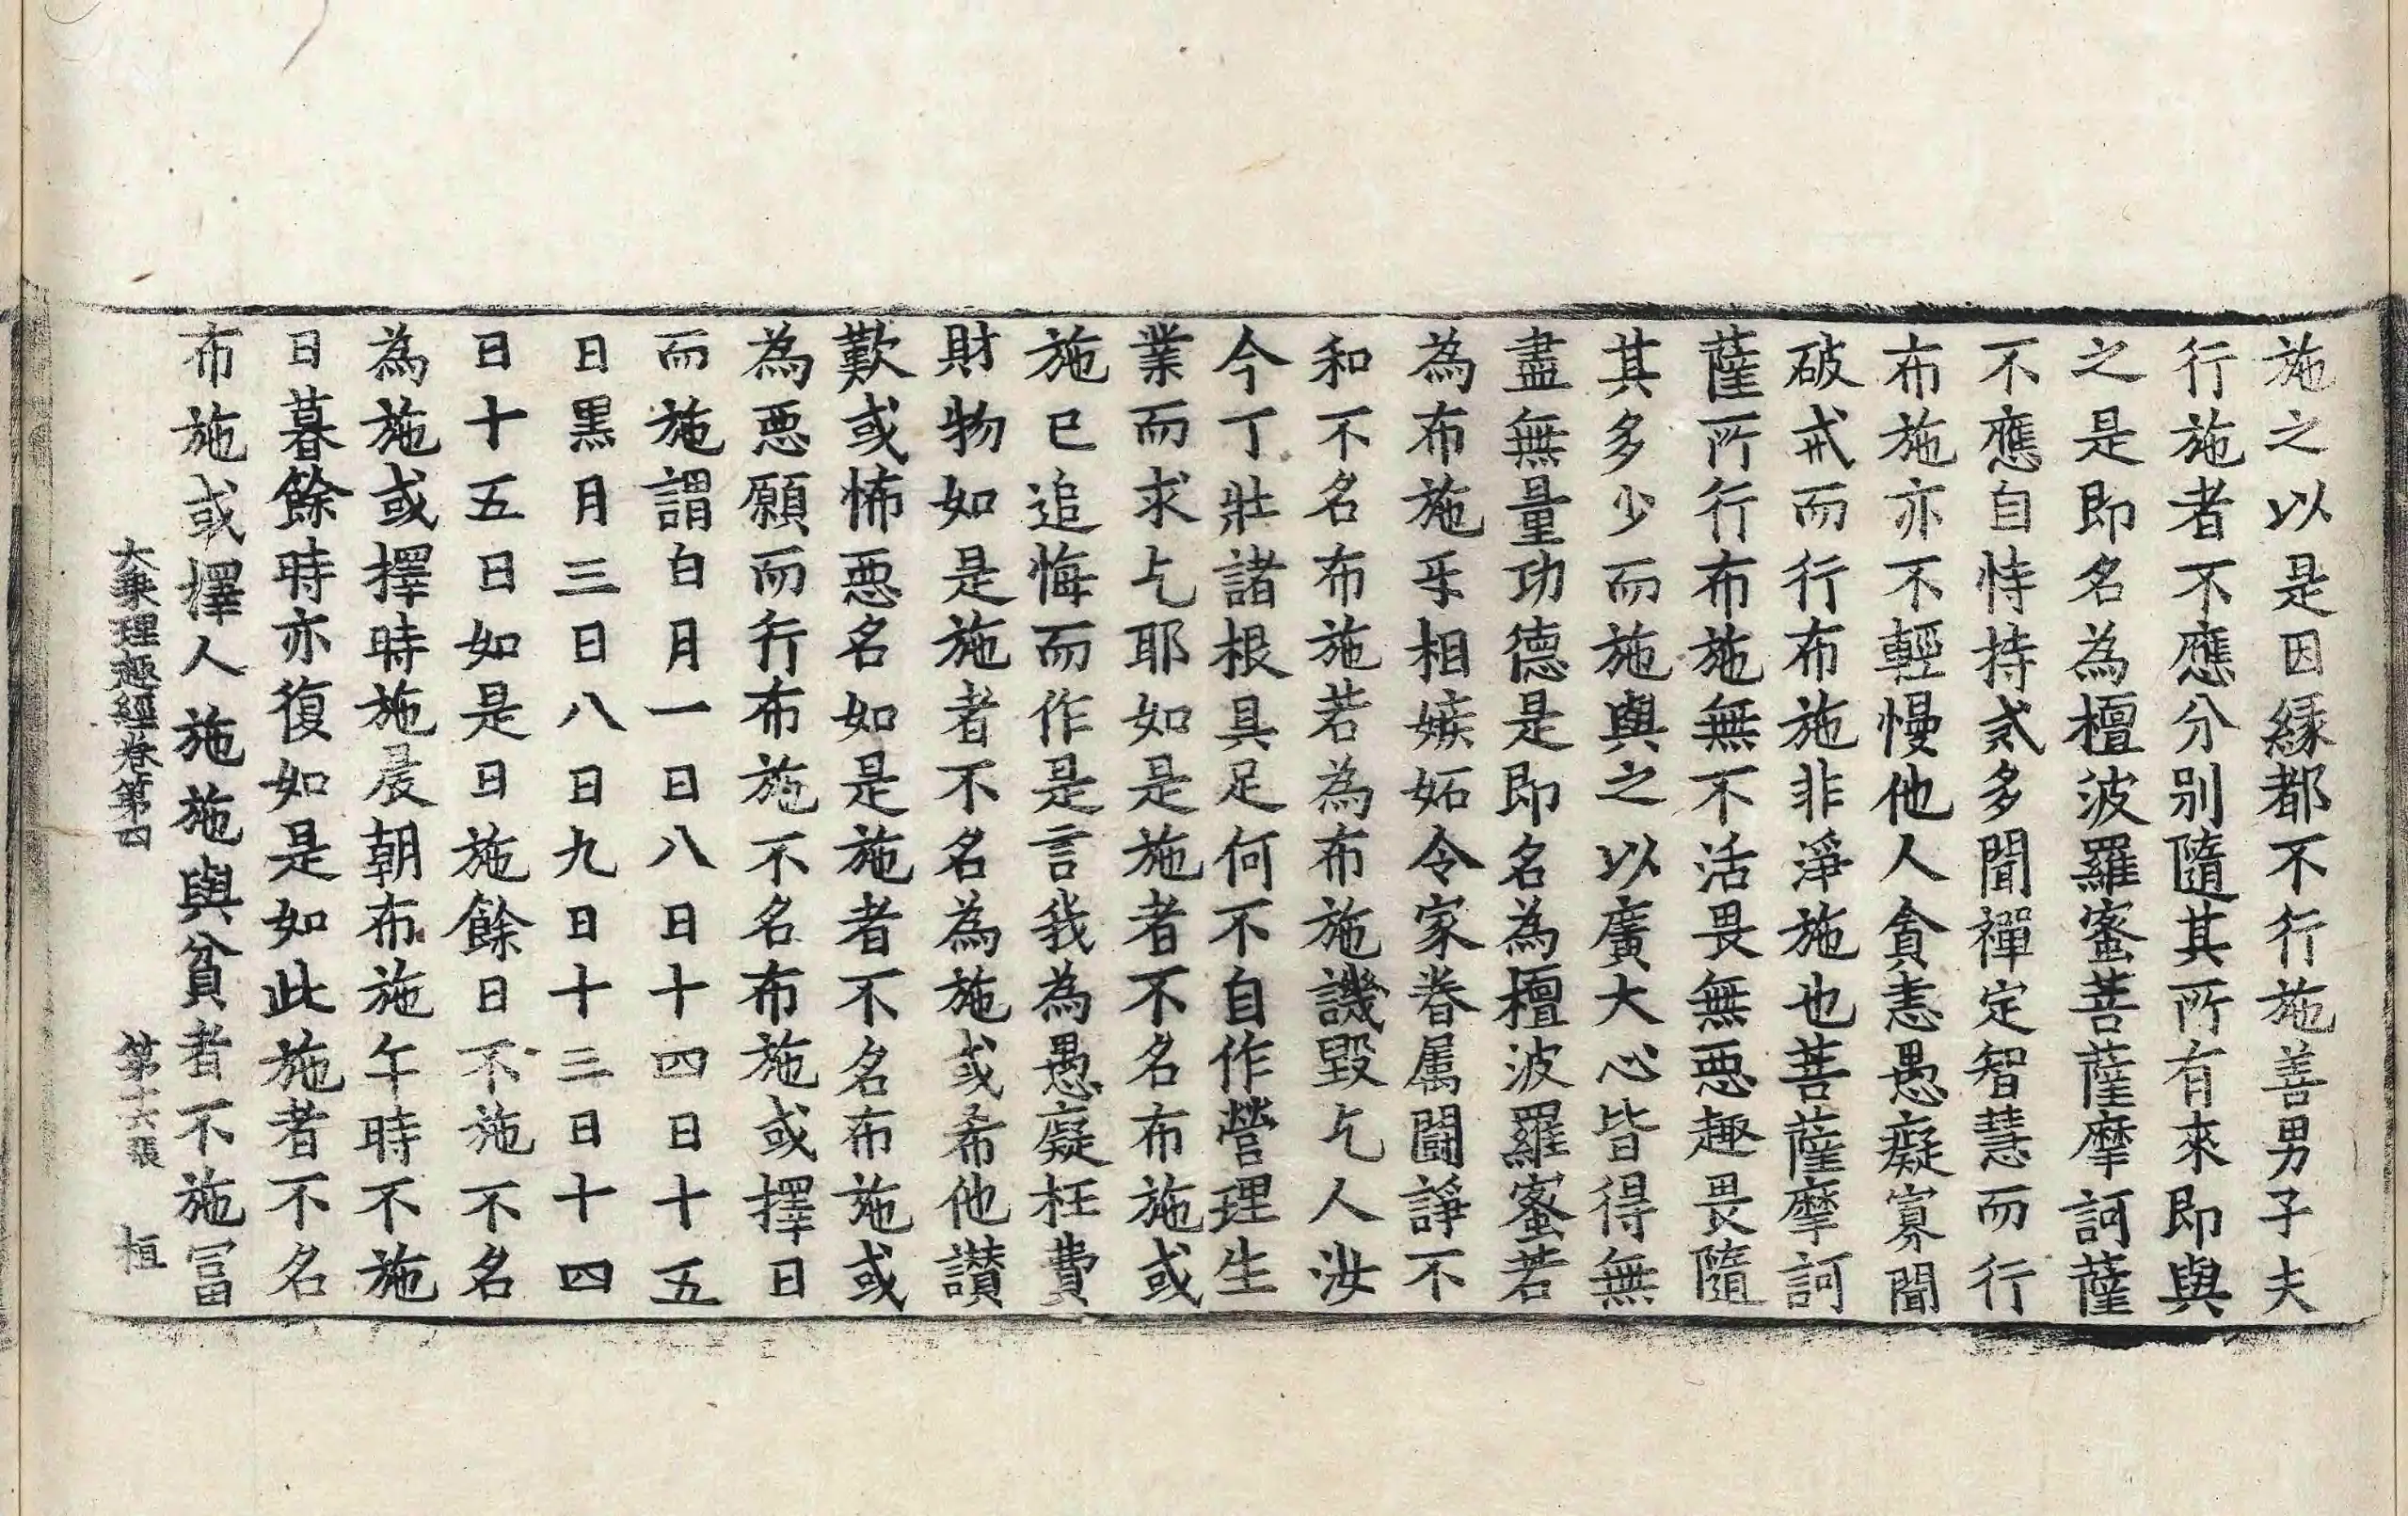 施之以是因縁都不行施善男子夫
行施者不應分別隨其所有來即與
之是即名為檀波羅蜜菩薩摩訶薩
不應自恃持戒多聞禪定智慧而行
布施亦不輕慢他人貪恚愚癡寡聞
破戒而行布施非淨施也菩薩摩訶
薩所行布施無不活畏無惡趣畏隨
其多少而施與之以廣大心皆得無
盡無量功德是即名為檀波羅蜜若
為布施乎相嫉妬令家眷属鬪諍不
和不名布施若為布施譏毀乞人汝
今丁壯諸根具足何不自作營理生
業而求乞耶如是施者不名布施或
施已追悔而作是言我為愚癡枉費
財物如是施者不名為施或希他讚
歎或怖惡名如是施者不名布施或
為惡願而行布施不名布施或擇日
而施謂白月一日八日十四日十五
日黒月三日八日九日十三日十四
日十五日如是日施餘日不施不名
為施或擇時施晨朝布施午時不施
日暮餘時亦復如是如此施者不名
布施或擇人施施與貧者不施冨
大乘理趣經卷第四 第十六張 恒